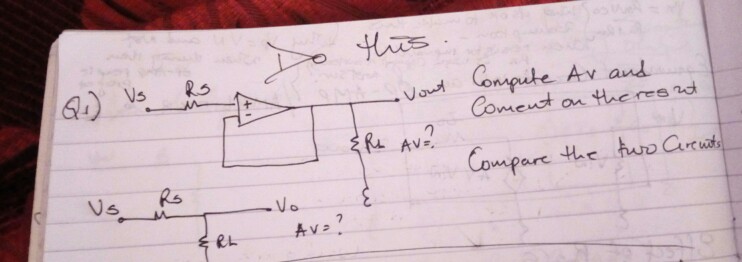 this.
Q1) Vs Rs + - Vout Compute Av and
Coment on the result
RL AV=?
Compare the two Circuits
Vs Rs Vo
RL AV=?